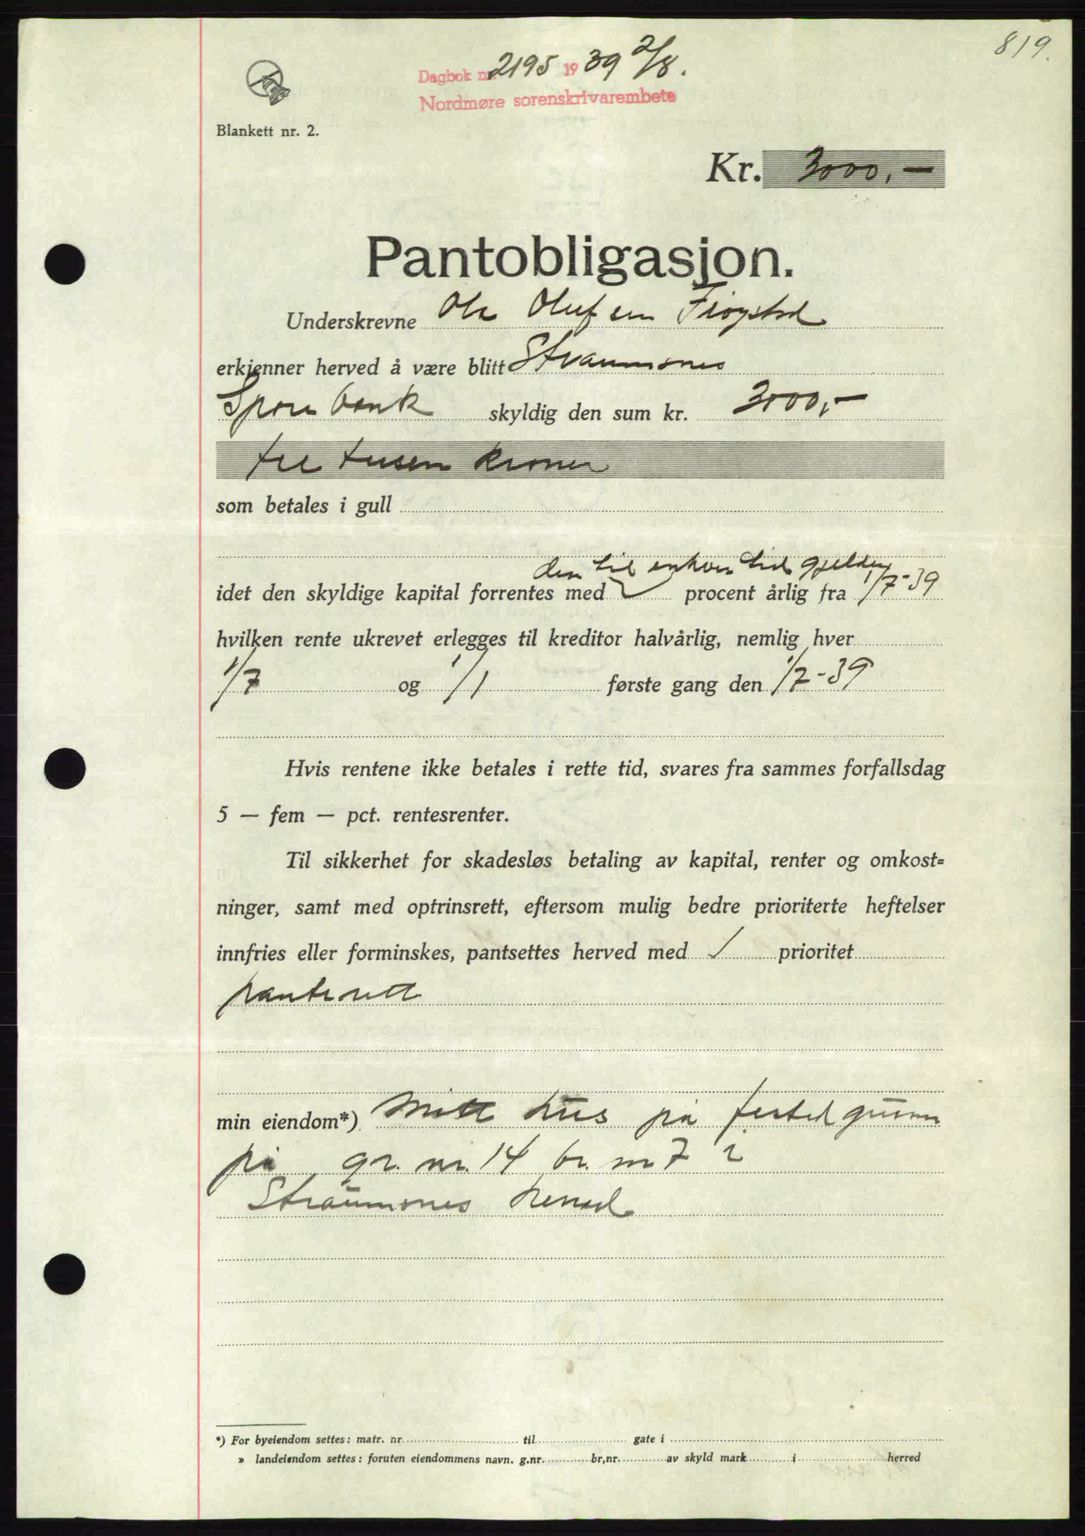 819.
Dagbok nr. 2195 1939 2/8.
Nordmøre sorenskrivarembete
Blankett nr. 2.
Kr. 3000,—
Pantobligasjon.
Underskrevne Ole Olufsen
erkjenner herved å være blitt Straumsnes
Sparebank skyldig den sum kr. 3000,-
tre tusen kroner
som betales i gull
den til enhver tid gjelden
idet den skyldige kapital forrentes med procent årlig fra 1/7-39
hvilken rente ukrevet erlegges til kreditor halvårlig, nemlig hver
1/7 og 1/1 første gang den 1/7-39
Hvis rentene ikke betales i rette tid, svares fra sammes forfallsdag
5 — fem — pct. rentesrenter.
Til sikkerhet for skadesløs betaling av kapital, renter og omkost=
ninger, samt med optrinsrett, eftersom mulig bedre prioriterte heftelser
innfries eller forminskes, pantsettes herved med 1 prioritet
panterett
min eiendom*) mitt hus på festet grunn
på gr. nr. 14 br. nr 7 i
Straumsnes herred
*) For byeiendom settes: matr. nr. til gate i
» landeiendom settes: foruten eiendommens navn. g.nr. br,nr. av skyld mark i herred